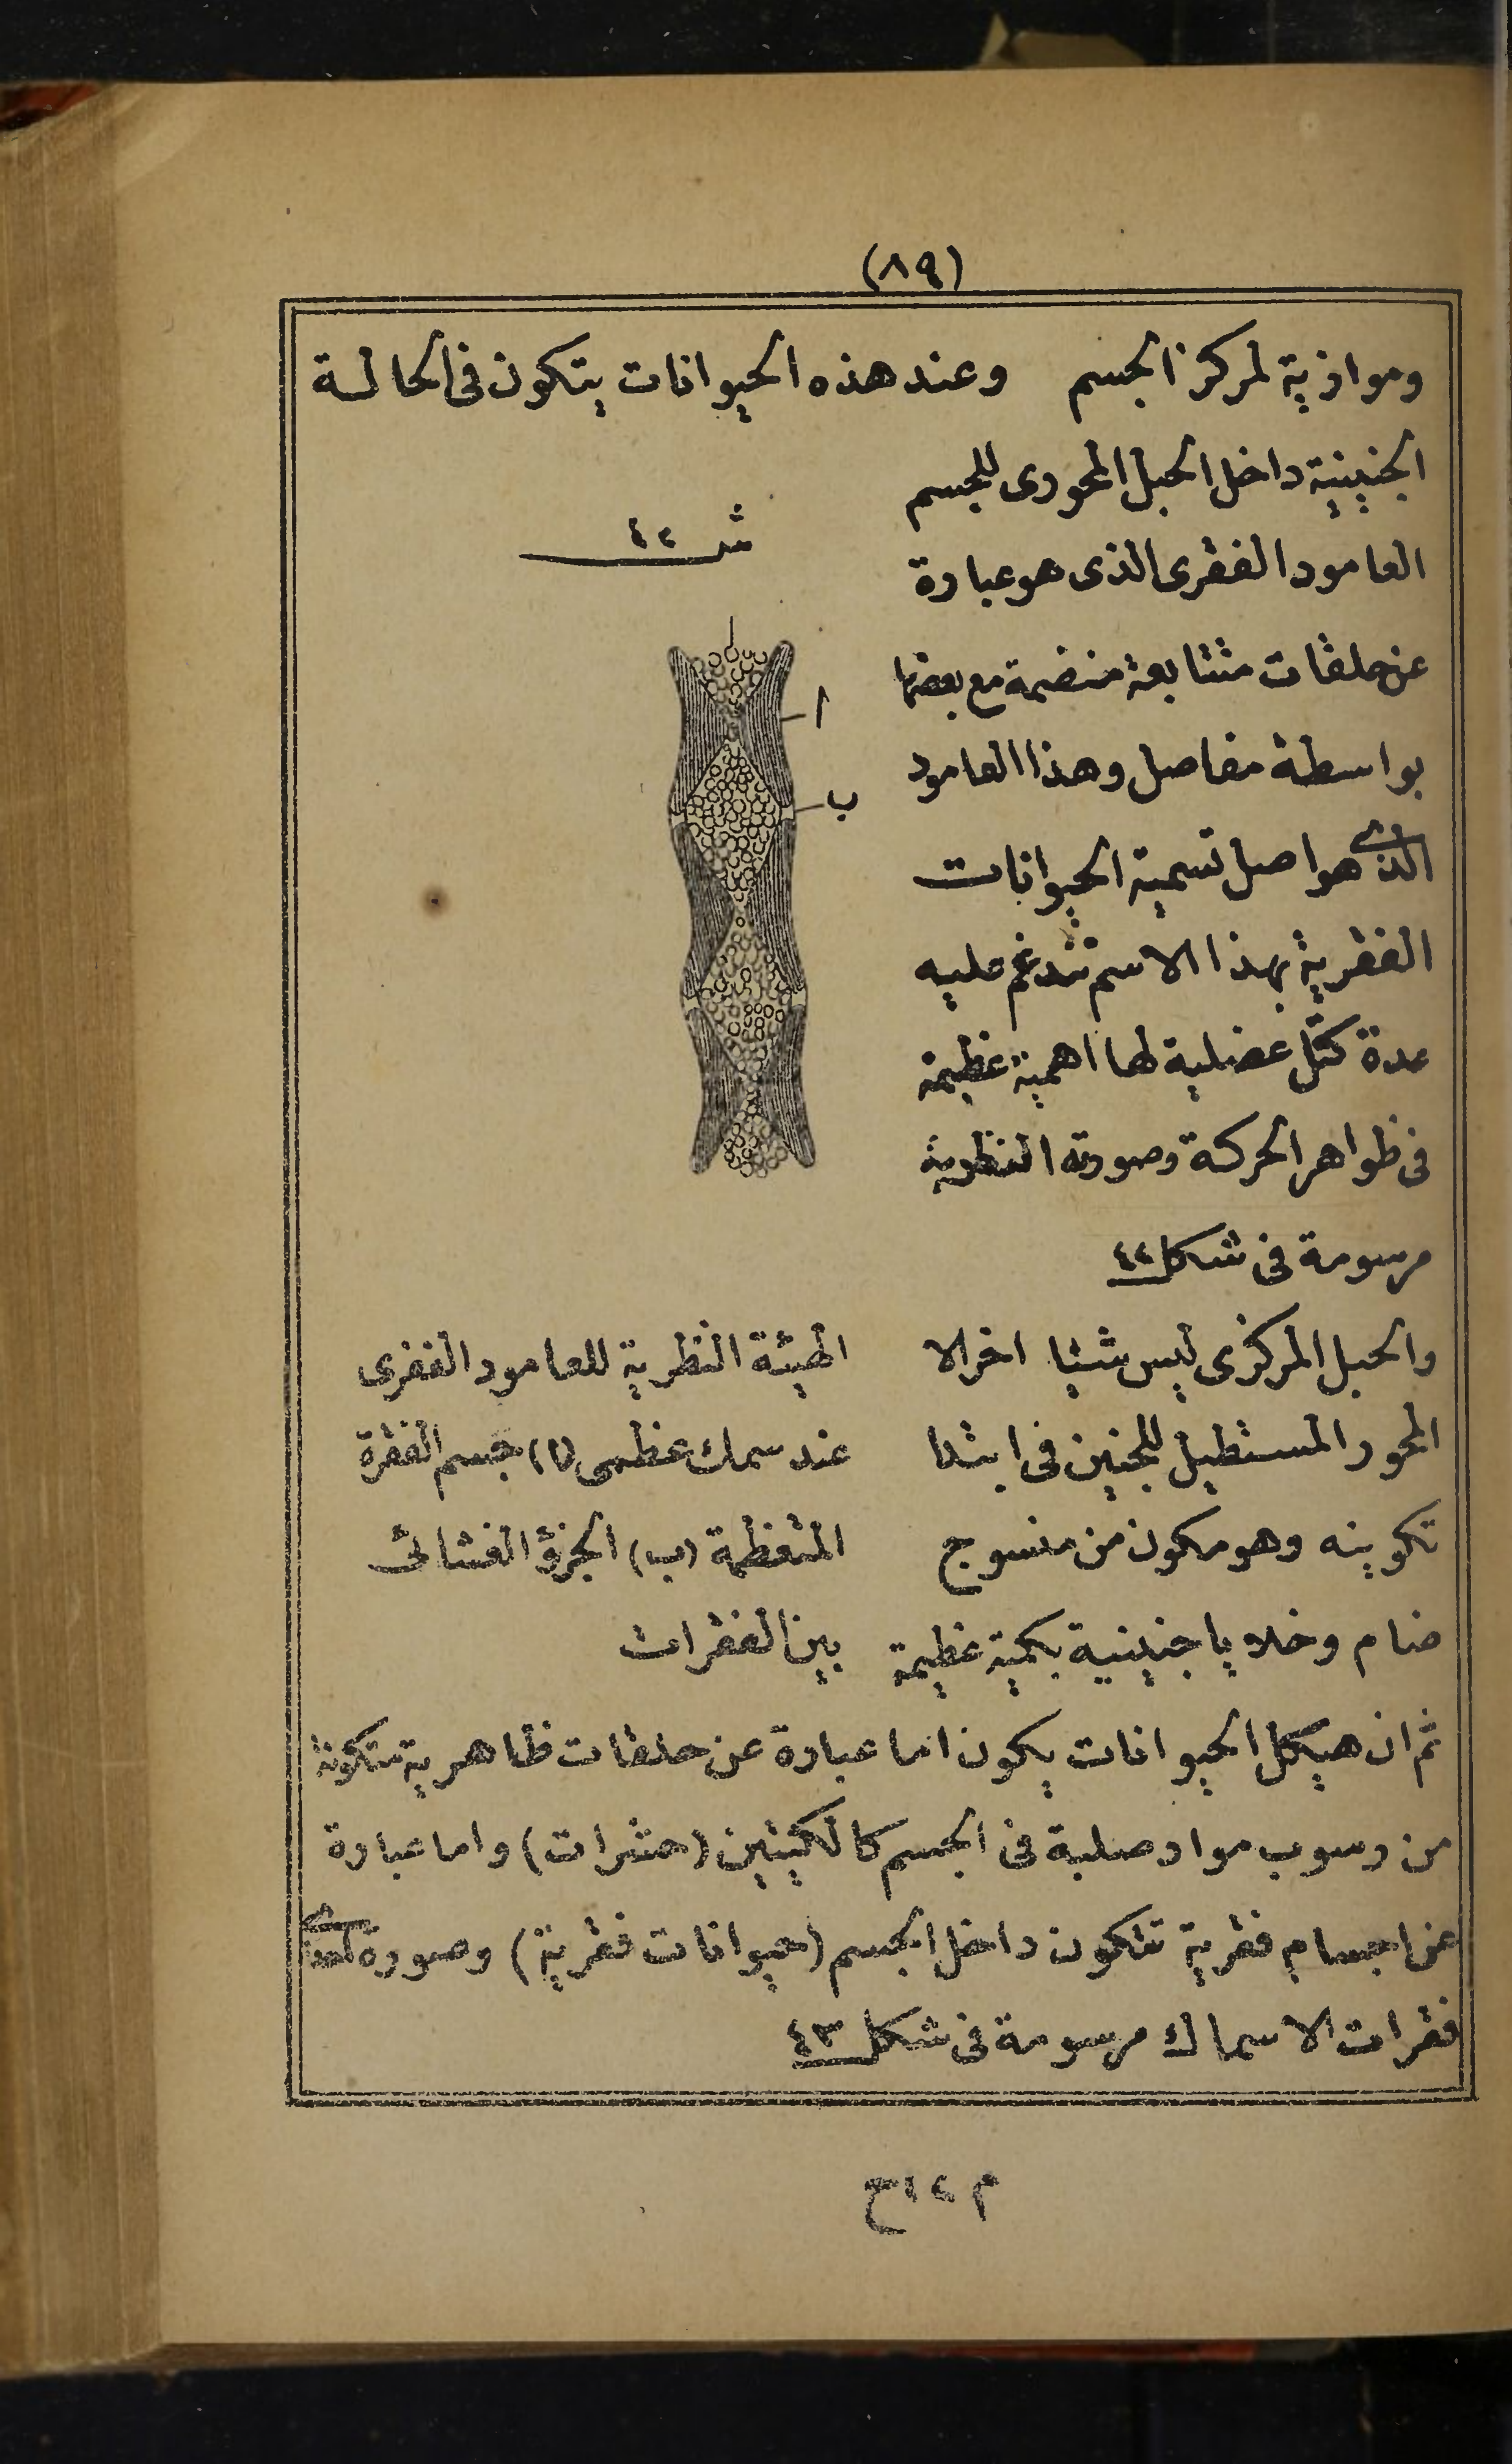 (٨٩)
وموازية لمركز الجسم وعند هذه الحيوانات يتكون فى الحالة
الجنينية داخل الحبل المحورى للجسم
العامود الفقرى الذى هو عبارة
عن حلقات متتابعة منضمة مع بعضها
بواسطة مفاصل وهذا العامود
الذى هو اصل تسمية الحيوانات
الفقرية بهذا الاسم تندغم عليه
عدة كتل عضلية لها اهمية عظيمة
فى ظواهر الحركة وصورته النظرية
مرسومة فى شكل ٤٢
والحبل المركزى ليس شيئا اخر الا
المحور المستطيل للجنين فى ابتدا
تكوينه وهو مكون من منسوج
ضام وخلايا جنينية بكمية عظيمة
شـ ٤٢
ا
ب
الهيئة النظرية للعامود الفقرى
عند سمك عظمى (ا) جسم الفقرة
المتعظمة (ب) الجزؤ الغشائى
بين الفقرات
ثم ان هيكل الحيوانات يكون اما عبارة عن حلقات ظاهرية متكونة
من رسوب مواد صلبة فى الجسم كالكيتين (حشرات) واما عبارة
عن اجسام فقرية تتكون داخل الجسم (حيوانات فقرية) وصورة احدى
فقرات الاسماك مرسومة فى شكل ٤٣